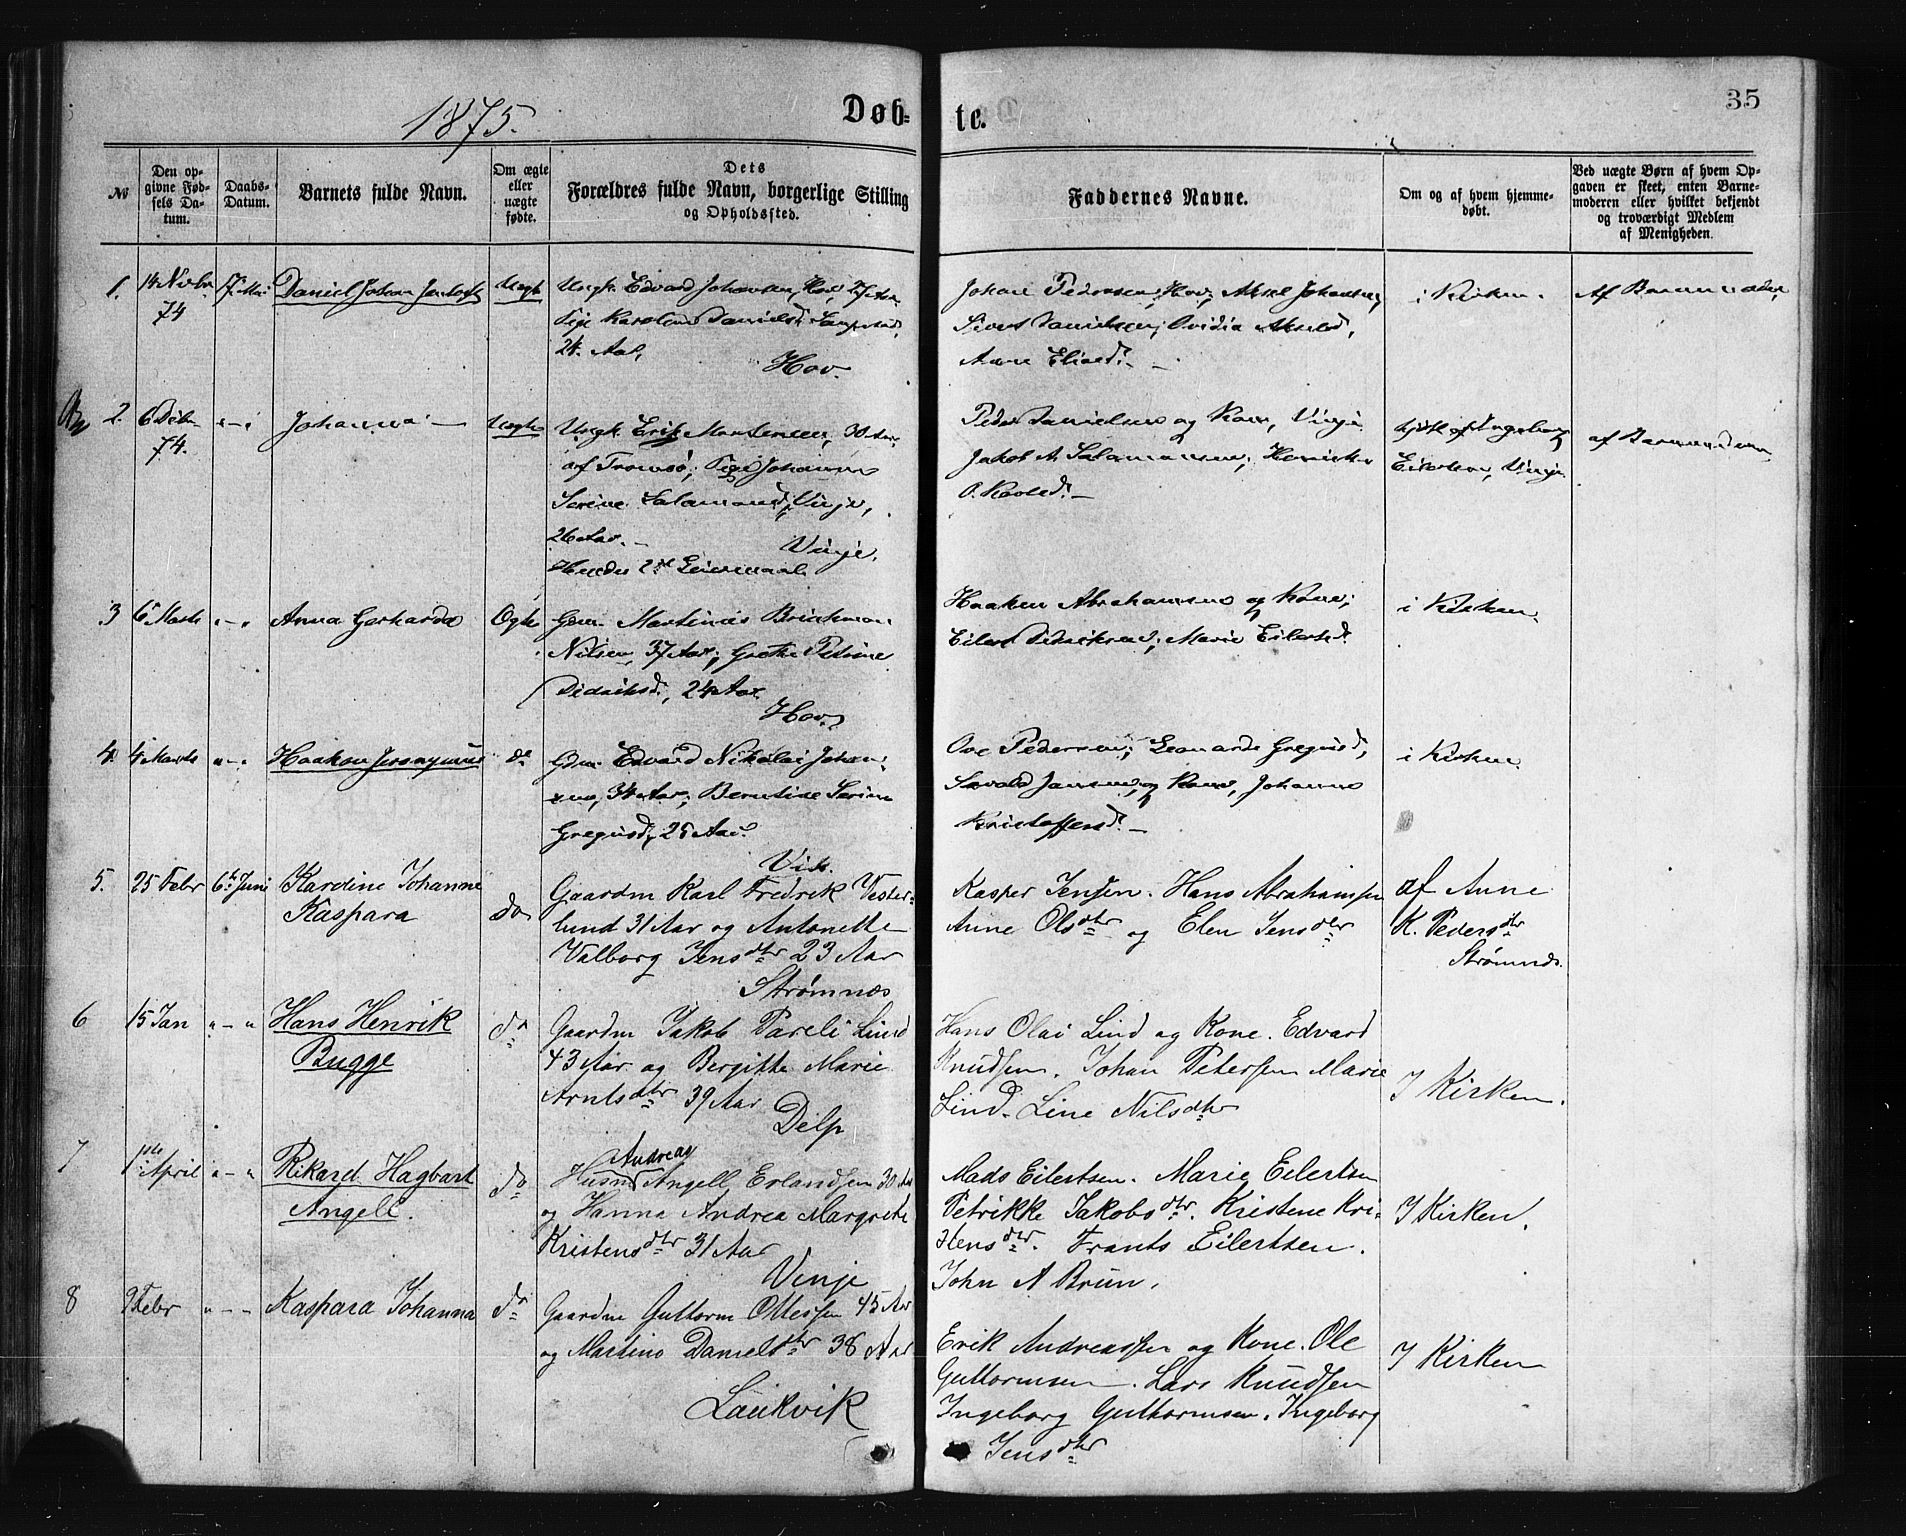 1875.
Døb-
te.
35
№
Den op-
givne Fød-
sels Da-
tum.
Daabs-
Datum.
Barnets fulde Navn.
Om ægte
eller
uægte
fødte.
Dets
Forældres fulde Navn, borgerlige Stilling
og Opholdssted.
Faddernes Navne.
Om og af hvem hjemme-
døbt.
Ved uægte Børn af hvem Op-
gaven er skeet, enten Barne-
moderen eller hvilket bekjendt
og troværdigt Medlem
af Menigheden.
1.
14 Novbr
74
17 Mai
Daniel Johan
Uægte
Ungk. Edvard Johansen, Hov,
Pige Karoline Danielsd.
24. Aar,
Hov.
Johan Pedersen, Hov; Aksel Johansen,
Sivert Danielsen; Ovidia Akselsd,
Anne Eliasd. —
i Kirken.
Af Barnemoder,
2.
6 Debr
74.
" — "
Johanna —
Uægte
Ungk. Erik Martensen, 30 Aar
af Tromsø; Pige Johanna
Serine Salamonsd, Vinje,
26 Aar. —
Vinje.
Hendes 2det Leiermaal
Peder Danielsen og Kone, Vinje
Jakob A. Salamonsen;
O. Karlsd. —
hjdbt af Ingeborg
Eilertsen, Vinje
af Barnemoderen
3
6 Marts
" — "
Anna Gerharda
Ægte
Gdm. Martinus Brinkman
Nilsen, 37 Aar; Grethe Petrine
Didriksd., 24 Aar.
Hov.
Haaken Abrahamsen og Kone;
Eilert Didriksen; Marie Eilertsd.
i Kirken.
4.
4 Marts
" — "
Haakon Jeronymus
do
Gdm. Edvard Nikolai Johan-
sen, 34 Aar; Berntine Serine
Gregusd, 25 Aar.
Vik.
Ove Pedersen; Leonarde Gregusd,
Sivald Jansen og Kone, Johanne
Kristoffersd. —
i Kirken.
5.
25 Febr
6te Juni
Karoline Johanne
Kaspara
do
Gaardm Karl Fredrik Vester-
lund 31 Aar og Antonette
Valborg Jensdtr 23 Aar
Strømnes
Kasper Jensen. Hans Abrahamsen
Anne Olsdtr og Elen Jensdtr
af Anne
K. Pedersdtr
Strømnes.
6
15 Jan
" — "
Hans Henrik
Bugge
do
Gaardm Jakob Pareli Lind
43 Aar og Bergitte Marie
Arntsdtr 39 Aar
Delp
Hans Olai Lind og Kone. Edvard
Knudsen. Johan Petersen Marie
Lind. Line Nilsdtr
I Kirken.
7
1ste April
" — "
Rikard Hagbart
Angell.
do
Andreas
Husm Angell Erlandsen 30 Aar
og Hanna Andrea Margrete
Kristensdtr 31 Aar
Vinje
Mads Eilertsen. Marie Eilertsen
Petrikke Jakobsdtr. Kristene Kri-
stensdtr. Frants Eilertsen.
John A Brun.
I Kirken.
8
9 Febr
" — "
Kaspara Johanna
do
Gaardm Guttorm Ottessen 45 Aar
og Martine Danielsdtr 38 Aar
Laukvik
Erik Andreassen og Kone. Ole
Guttormsen. Lars Knudsen
Ingeborg Guttormsen. Ingeborg
Jensdtr
I Kirken